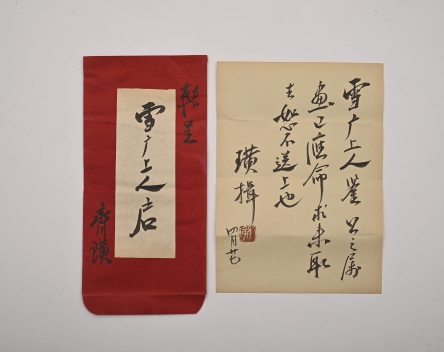 轉呈
雪广上人啓
齊璜
雪广上人鉴公之属
画已應命求来取
去恕不送上也
璜揖
四月廿